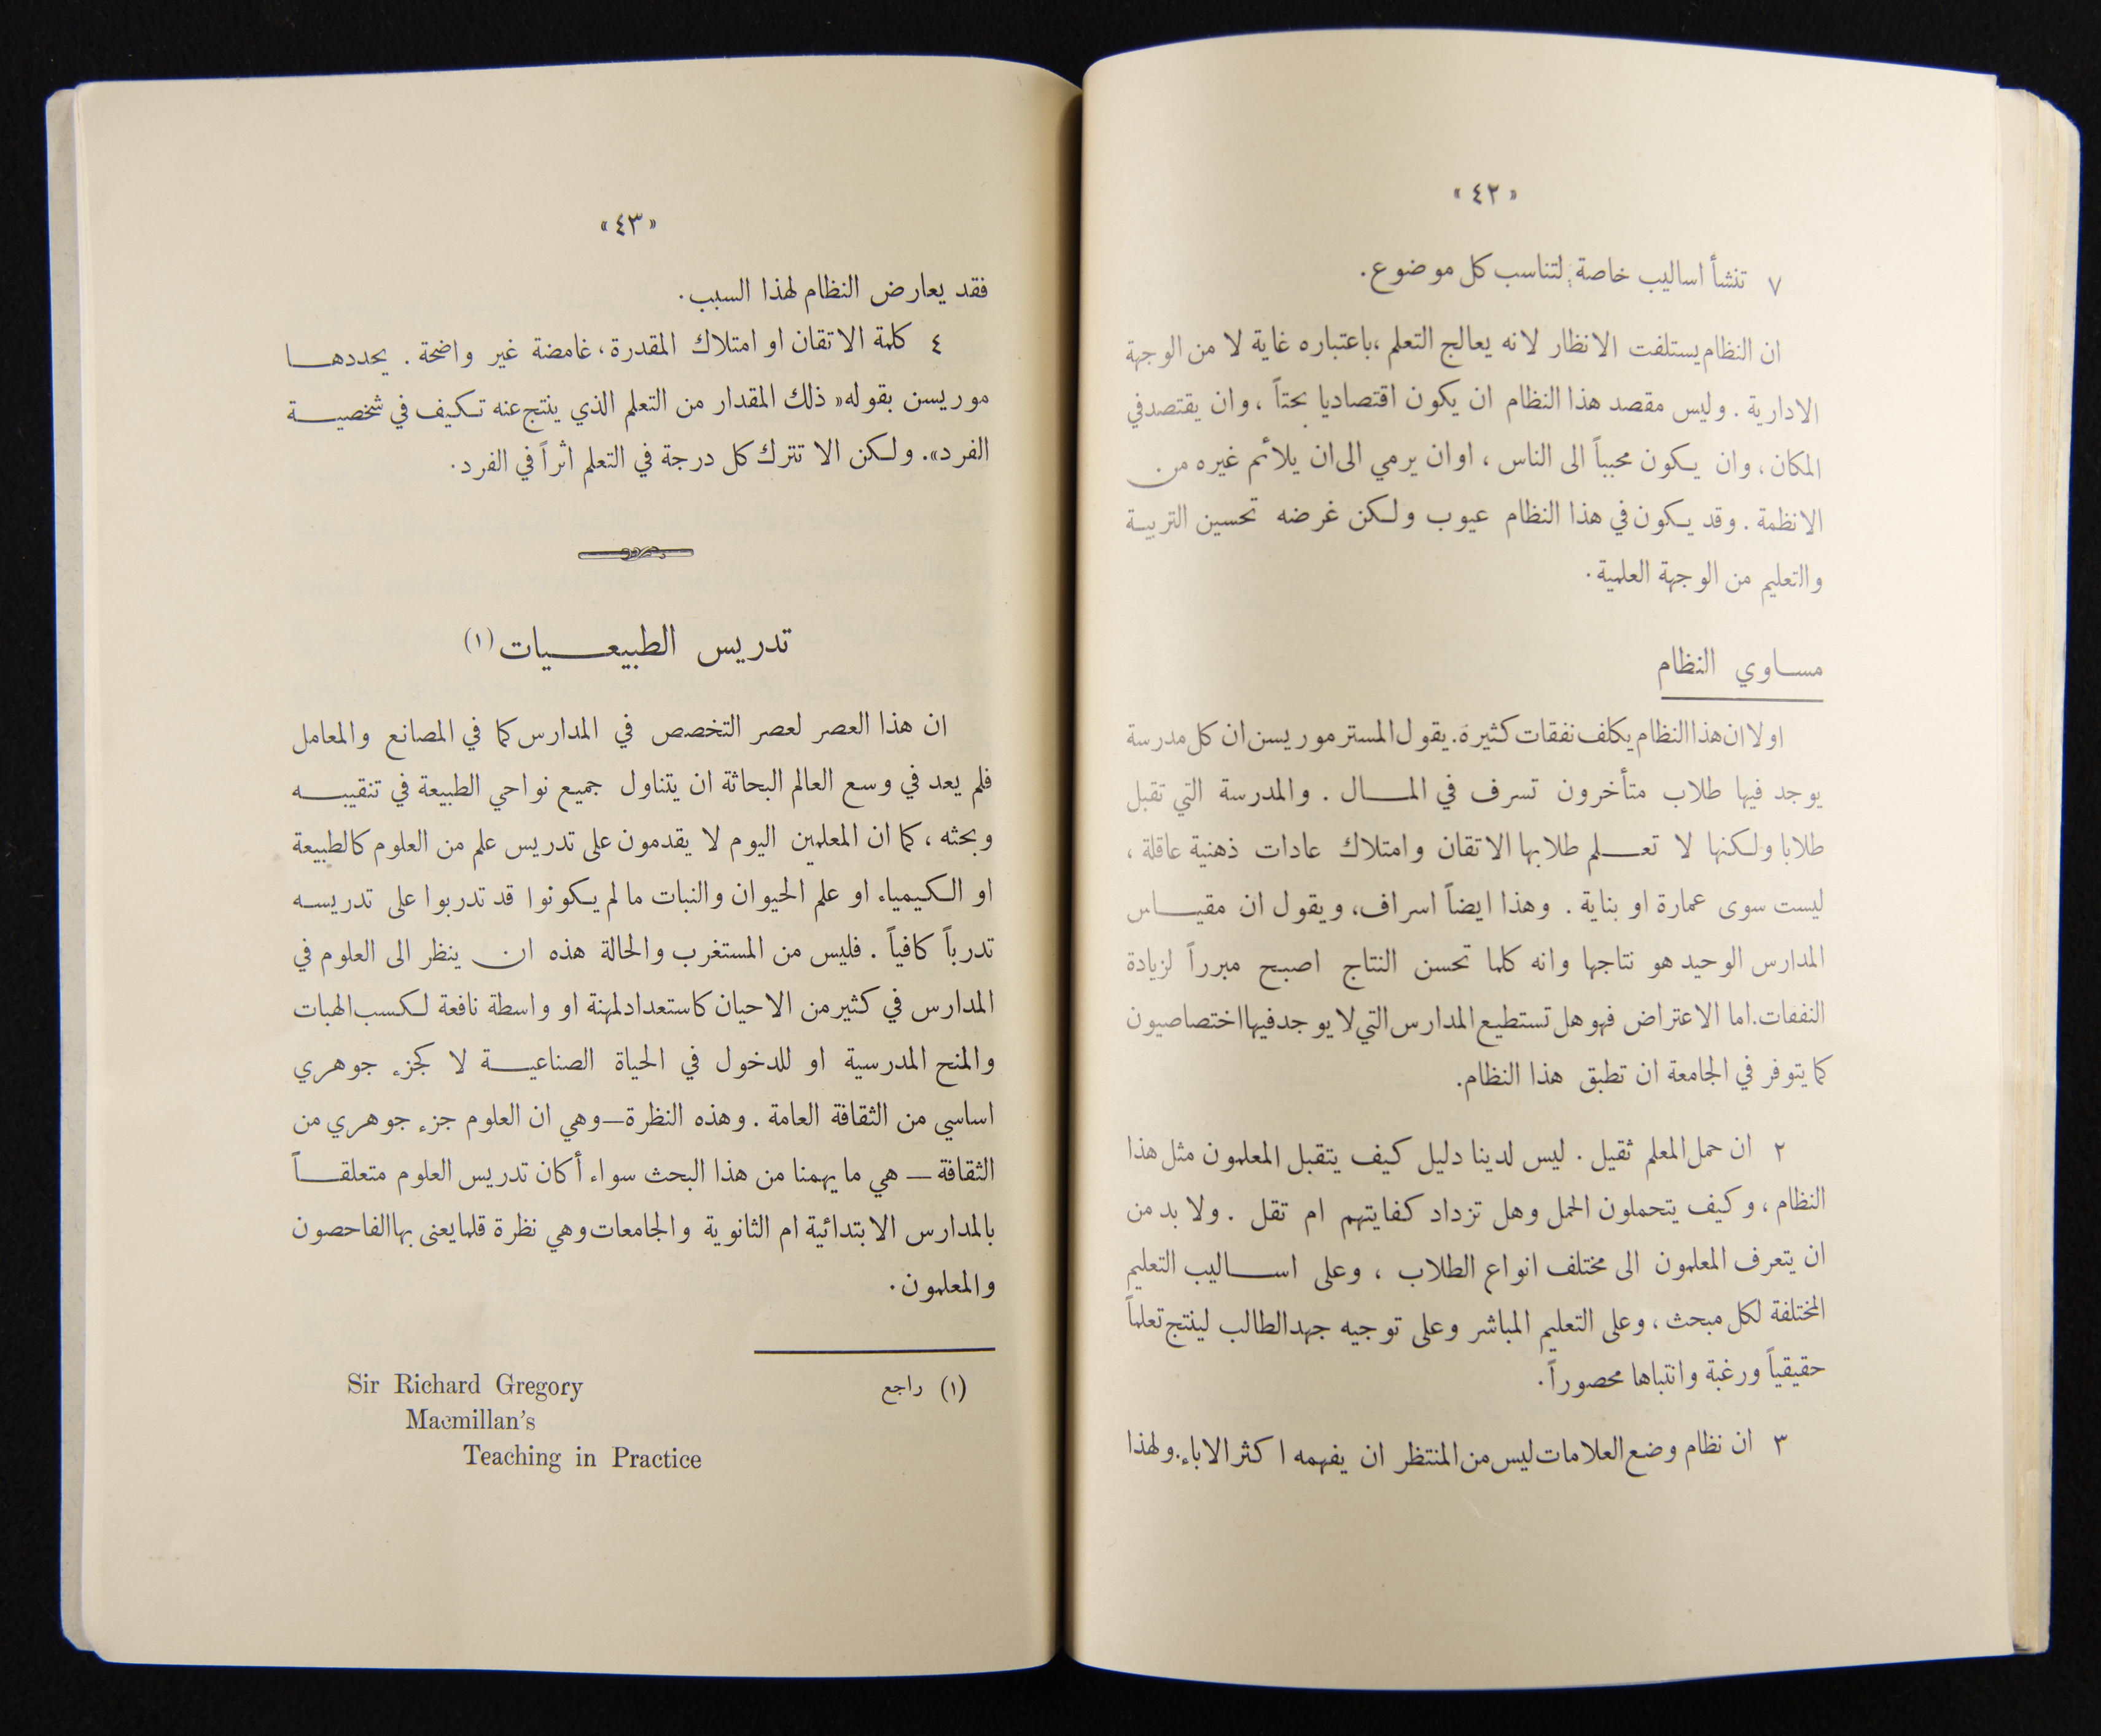 « ٤٢ »
٧ تنشأ اساليب خاصة لتناسب كل موضوع.
ان النظام يستلفت الانظار لانه يعالج التعلم ،باعتباره غاية لا من الوجهة
الادارية . وليس مقصد هذا النظام ان يكون اقتصاديا بحتاً ، وان يقتصد في
المكان ، وان يكون محبباً الى الناس ، او ان يرمي الى ان يلائم غيره من
الانظمة . وقد يكون في هذا النظام عيوب ولكن غرضه تحسين التربية
والتعليم من الوجهة العلمية .
مساوي النظام
اولا ان هذا النظام يكلف نفقات كثيرة. يقول المستر موريسن ان كل مدرسة
يوجد فيها طلاب متأخرون تسرف في المال . والمدرسة التي تقبل
طلابا ولكنها لا تعلم طلابها الاتقان وامتلاك عادات ذهنية عاقلة ،
ليست سوى عمارة او بناية . وهذا ايضاً اسراف، ويقول ان مقياس
المدارس الوحيد هو نتاجها وانه كلما تحسن النتاج اصبح مبرراً لزيادة
النفقات. اما الاعتراض فهو هل تستطيع المدارس التي لا يوجد فيها اختصاصيون
كما يتوفر في الجامعة ان تطبق هذا النظام.
٢ ان حمل المعلم ثقيل . ليس لدينا دليل كيف يتقبل المعلمون مثل هذا
النظام ، وكيف يتحملون الحمل وهل تزداد كفايتهم ام تقل . ولا بد من
ان يتعرف المعلمون الى مختلف انواع الطلاب ، وعلى اساليب التعليم
المختلفة لكل مبحث ، وعلى التعليم المباشر وعلى توجيه جهد الطالب لينتج تعلماً
حقيقياً ورغبة وانتباها محصوراً.
٣ ان نظام وضع العلامات ليس من المنتظر ان يفهمه اكثر الاباء. ولهذا
« ٤٣ »
فقد يعارض النظام لهذا السبب .
٤ كلمة الاتقان او امتلاك المقدرة ، غامضة غير واضحة . يحددها
موريسن بقوله « ذلك المقدار من التعلم الذي ينتج عنه تكيف في شخصية
الفرد». ولكن الا تترك كل درجة في التعلم اثراً في الفرد .
تدريس الطبيعيات (١)
ان هذا العصر لعصر التخصص في المدارس كما في المصانع والمعامل
فلم يعد في وسع العالم البحاثة ان يتناول جميع نواحي الطبيعة في تنقيبه
وبحثه ، كما ان المعلمين اليوم لا يقدمون على تدريس علم من العلوم كالطبيعة
او الكيمياء او علم الحيوان والنبات ما لم يكونوا قد تدربوا على تدريسه
تدرباً كافياً . فليس من المستغرب والحالة هذه ان ينظر الى العلوم في
المدارس في كثير من الاحيان كاستعداد لمهنة او واسطة نافعة لكسب الهبات
والمنح المدرسية او للدخول في الحياة الصناعية لا كجزء جوهري
اساسي من الثقافة العامة . وهذه النظرة — وهي ان العلوم جزء جوهري من
الثقافة — هي ما يهمنا من هذا البحث سواء أكان تدريس العلوم متعلقاً
بالمدارس الابتدائية ام الثانوية والجامعات وهي نظرة قلما يعنى بها الفاحصون
والمعلمون .
(١) راجع Sir Richard Gregory
Macmillan's
Teaching in Practice